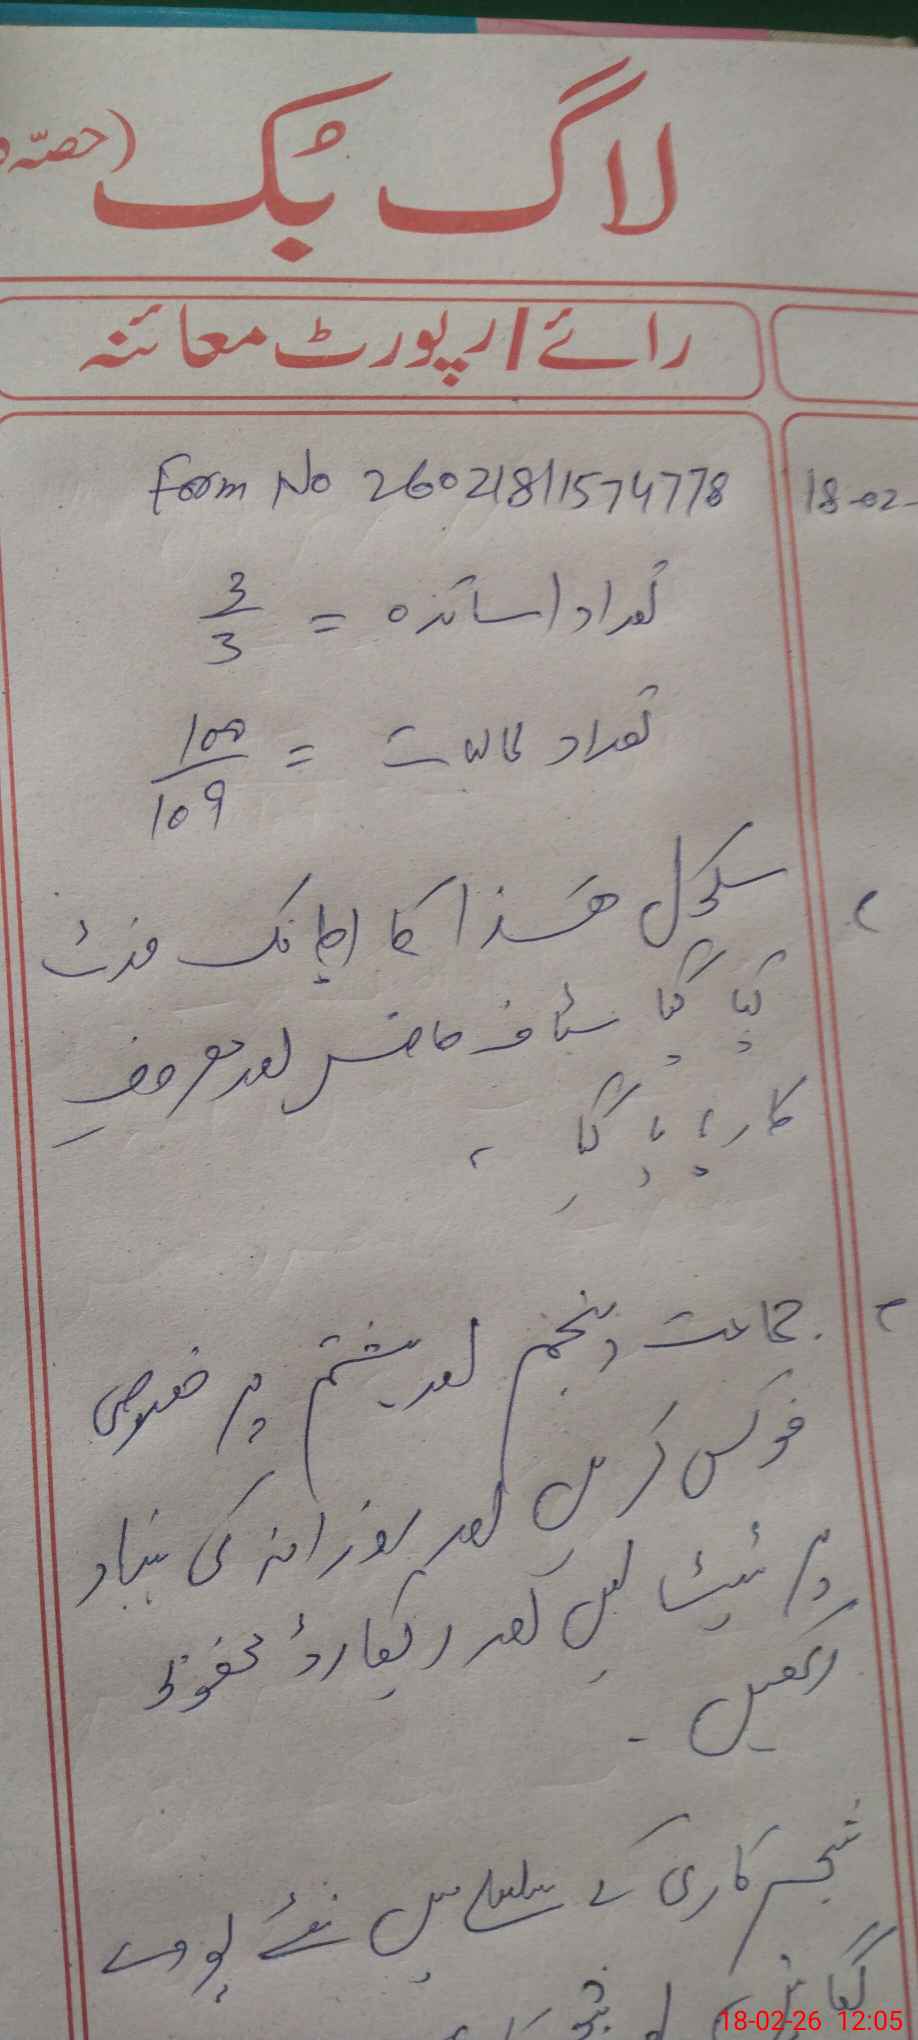 لاگ بُک (حصّہ
رائے/رپورٹ معائنہ
Form No 26021811574778
18-02-
تعداد اساتذہ = 3/3
تعداد طالبات = 100/109
سکول ھٰذا کا اچانک وزٹ
کیا گیا سٹاف حاضر اور مصروف
کار پایا گیا ۔
جماعت پنجم اور ہشتم پر خصوصی
فوکس کریں اور روزانہ کی بنیاد
پر ٹیسٹ لیں اور ریکارڈ محفوظ
رکھیں ۔
شجر کاری کے سلسلے میں نئے پودے
18-02-26 12:05